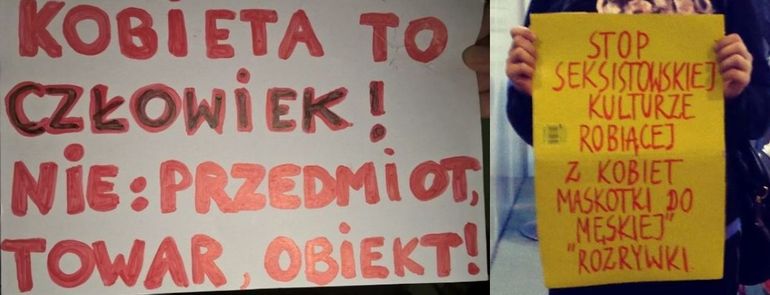 KOBIETA TO
CZŁOWIEK!
NIE: PRZEDMIOT,
TOWAR, OBIEKT!
STOP
SEKSISTOWSKIEJ
KULTURZE
ROBIĄCEJ
Z KOBIET
MASKOTKI DO
MĘSKIEJ"
"ROZRYWKI